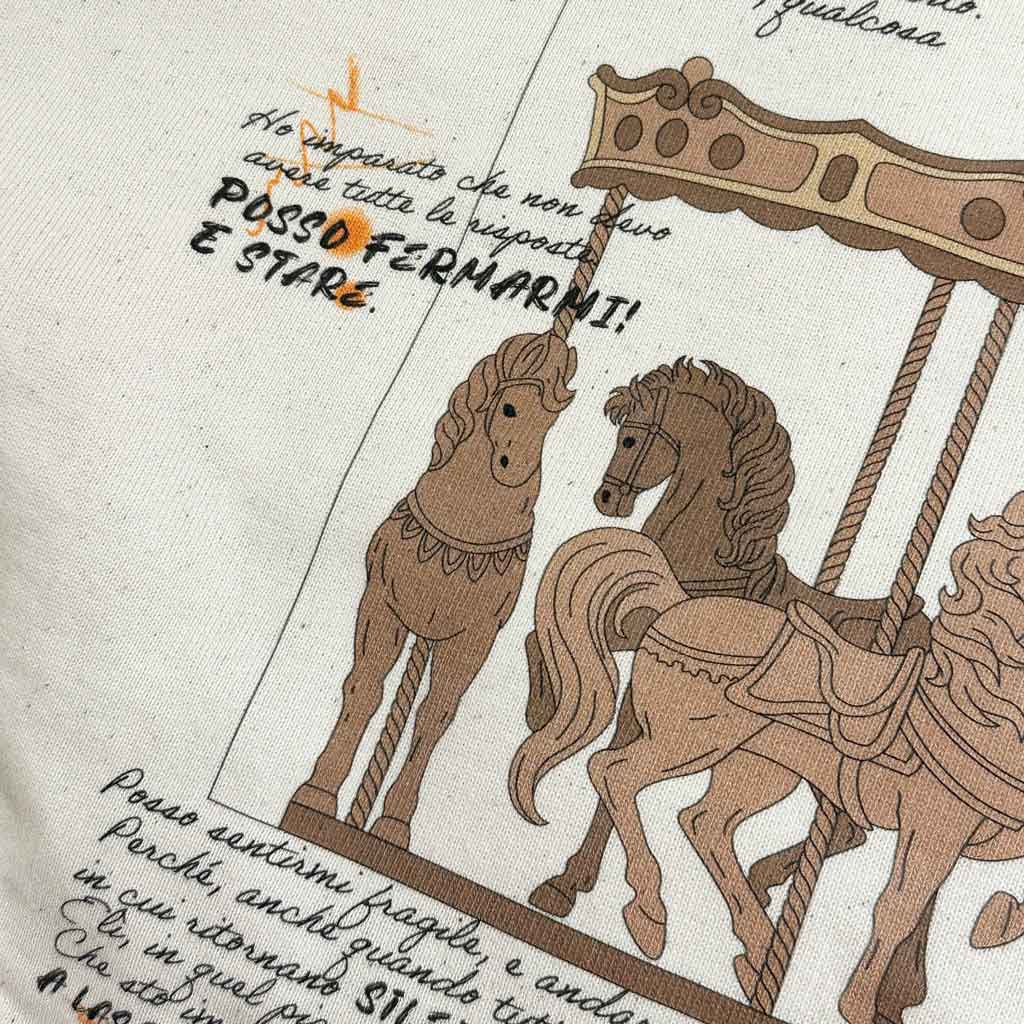 qualcosa
Ho imparato che non devo
avere tutte le risposte
POSSO FERMARMI!
E STARE.
Posso sentirmi fragile, e
Perché, anche quando
in cui ritornano
in quel
Che sto
A